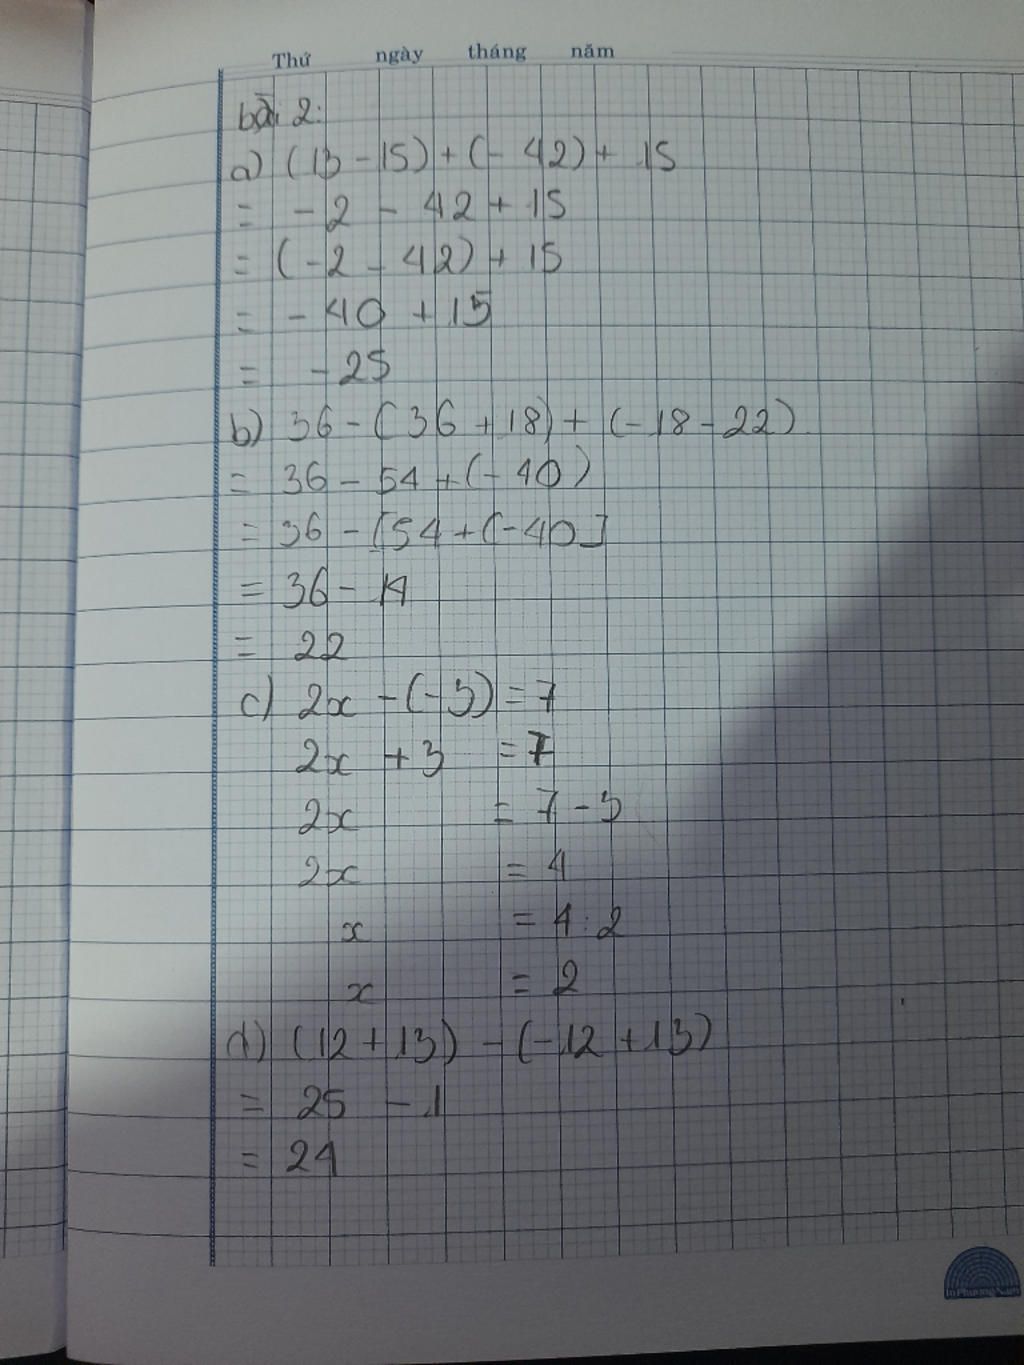 Thứ ngày tháng năm
bài 2:
a) (13 - 15) + (- 42) + 15
= - 2 - 42 + 15
= (-2 - 42) + 15
= - 40 + 15
= - 25
b) 36 - (36 + 18) + (-18 - 22)
= 36 - 54 + (- 40)
= 36 - [54 + (-40]
= 36 - 14
= 22
c) 2x - (-3) = 7
2x + 3 = 7
2x = 7 - 3
2x = 4
x = 4 : 2
x = 2
d) (12 + 13) - (-12 + 13)
= 25 - 1
= 24
In Phương Nam